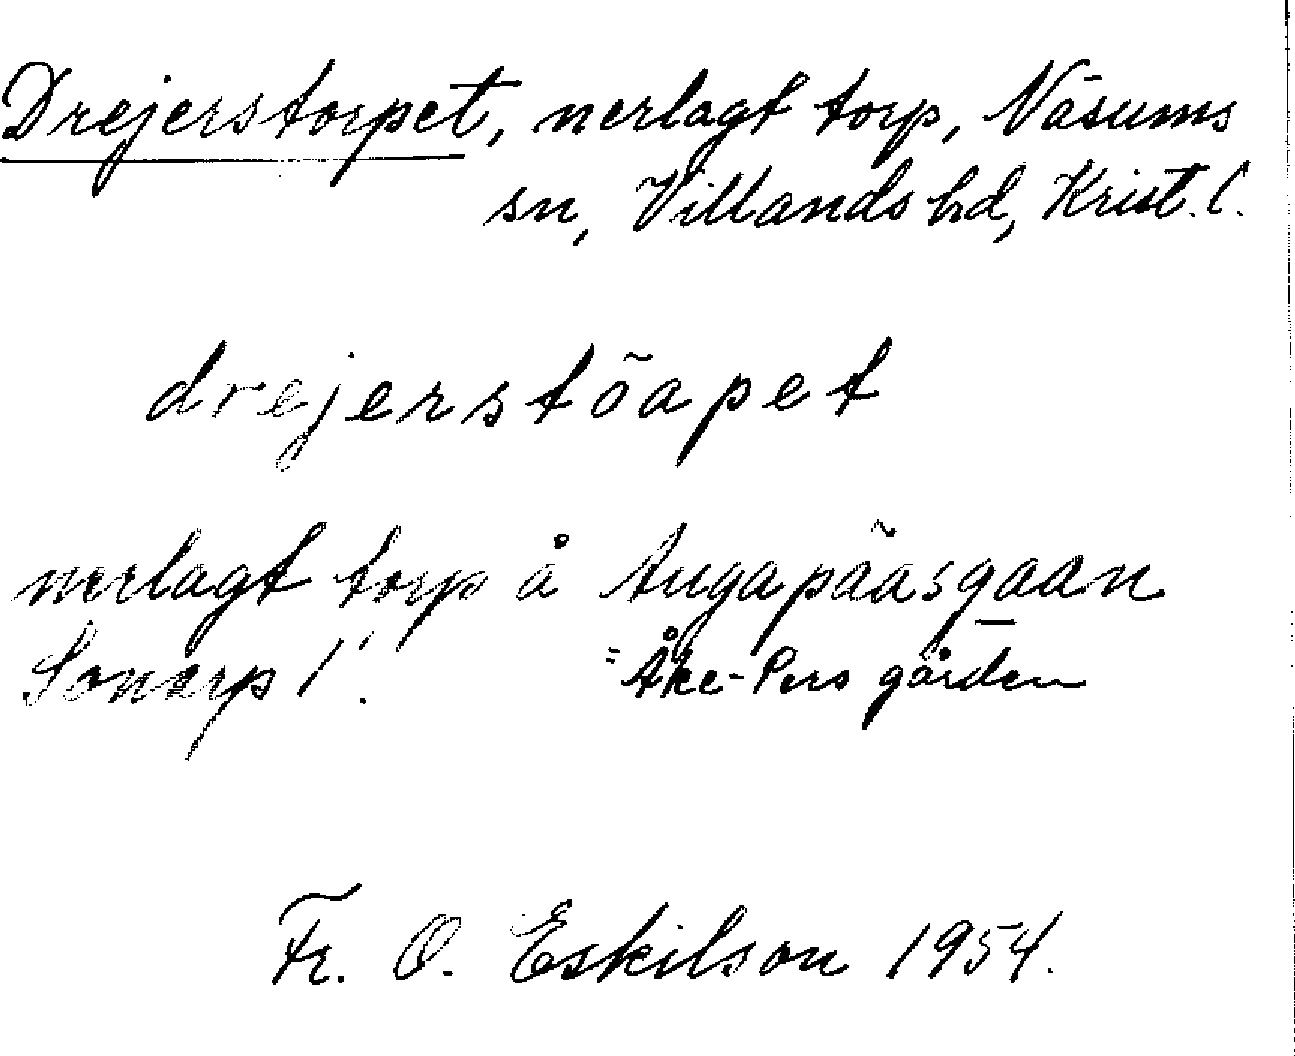 Drejerstorpet, nerlagt torp, Näsums
sn, Villands hd, Krist. l.
drejerstõapet
nerlagt torp å Augapããsgaan
Sonarp 1'.
= Åke-Pers gården
Fr. O. Eskilson 1954.